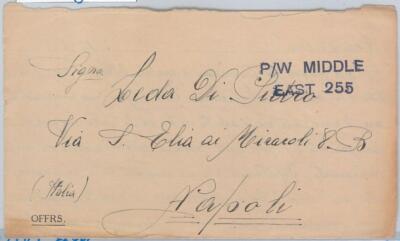 P/W MIDDLE
EAST 255
Sigra
Leda Di Pietro
Via S. Elia ai Miracoli 8. B
(Italia)
Napoli
OFFRS.